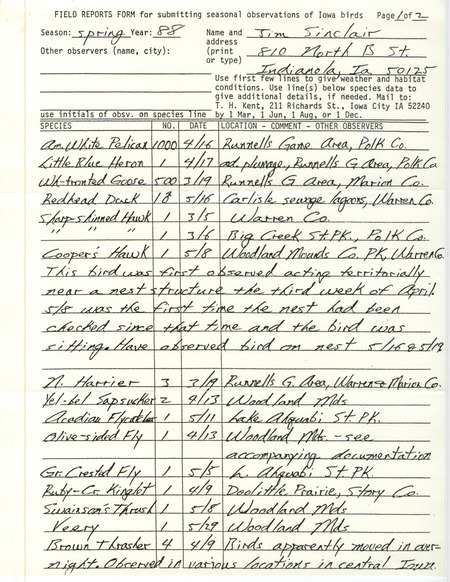 FIELD REPORTS FORM for submitting seasonal observations of Iowa birds Page 1 of 2
Season: spring Year: 88 Name and Jim Sinclair
Other observers (name, city): address 810 North B St.
(print
or type) Indianola, Ia 50125
Use first few lines to give weather and habitat
conditions. Use line(s) below species data to
give additional details, if needed. Mail to:
T. H. Kent, 211 Richards St., Iowa City IA 52240
use initials of obsv. on species line by 1 Mar, 1 Jun, 1 Aug, or 1 Dec.
SPECIES NO. DATE LOCATION - COMMENT - OTHER OBSERVERS
Am. White Pelican 1000 4/16 Runnells Game Area, Polk Co.
Little Blue Heron 1 4/17 ad. plumage, Runnells G Area, Polk Co
Wh-fronted Goose 500 3/19 Runnells G Area, Marion Co.
Redhead Duck 5/16 Carlisle sewage lagoons, Warren Co.
Sharp-shinned Hawk 1 3/5 Warren Co.
" " " 1 3/6 Big Creek St. PK., Polk Co.
Cooper's Hawk 1 5/8 Woodland Mounds Co. PK, Warren Co.
This bird was first observed acting territorially
near a nest structure the third week of April.
5/8 was the first time the nest had been
checked since that time and the bird was
sitting. Have observed bird on nest 5/16 & 5/19
N. Harrier 3 2/9 Runnells G. Area, Warren & Marion Co.
Yel-bel Sapsucker 2 4/13 Woodland Mds
Acadian Flycatcher 1 5/11 Lake Ahquabi St. PK.
Olive-sided Fly 1 4/13 Woodland Mds. - see
accompanying documentation
Gr. Crested Fly 1 5/5 L. Ahquabi St. PK.
Ruby-Cr. Kinglet 1 4/9 Doolittle Prairie, Story Co.
Swainson's Thrush 1 5/8 Woodland Mds
Veery 1 5/29 Woodland Mds
Brown Thrasher 4 4/9 Birds apparently moved in over-
night. Observed in various locations in central Iowa.